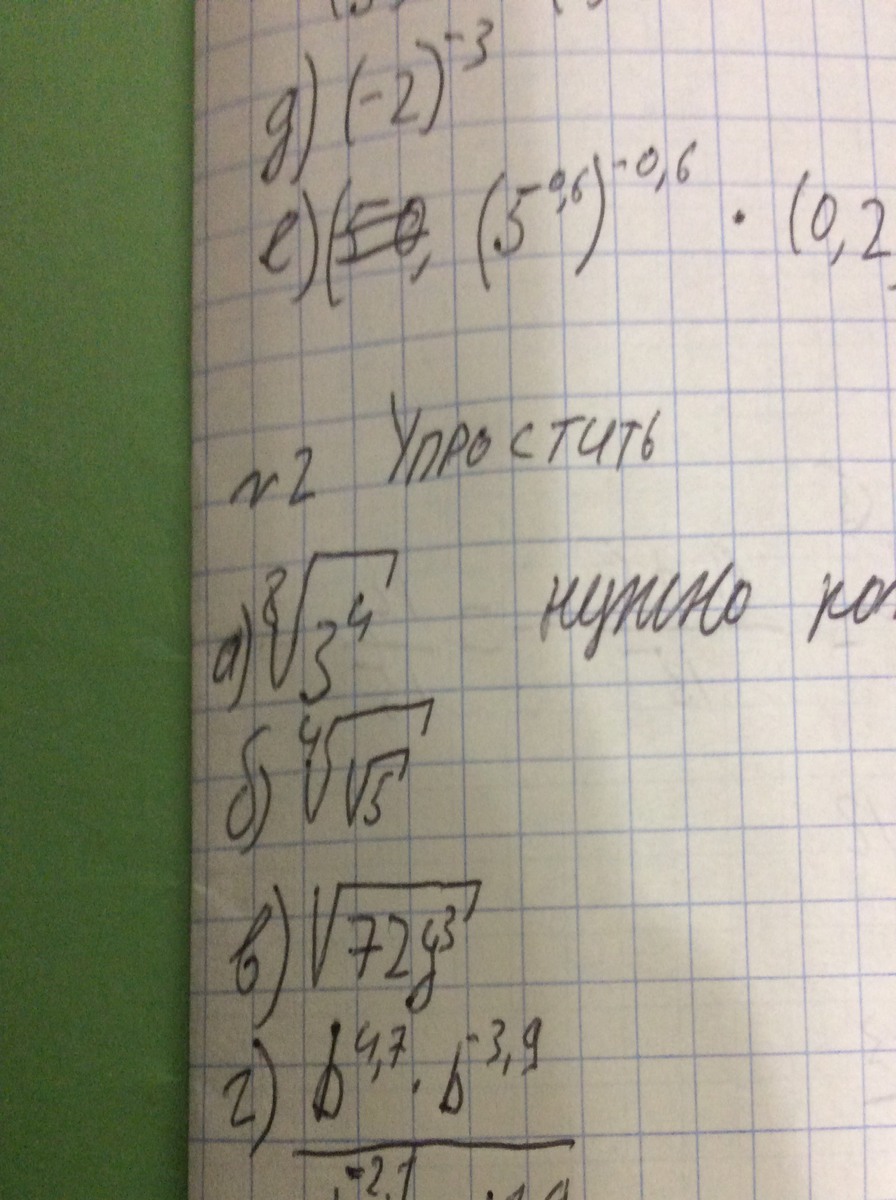 д) (-2)⁻³
е) (5⁻⁰,⁶)⁻⁰,⁶ · (0,2
№2 Упростить
а) ⁸√3⁴ нужно
б) ⁴√√5
в) √72y³
г) b⁴,⁷ · b⁻³,⁹
-2,1